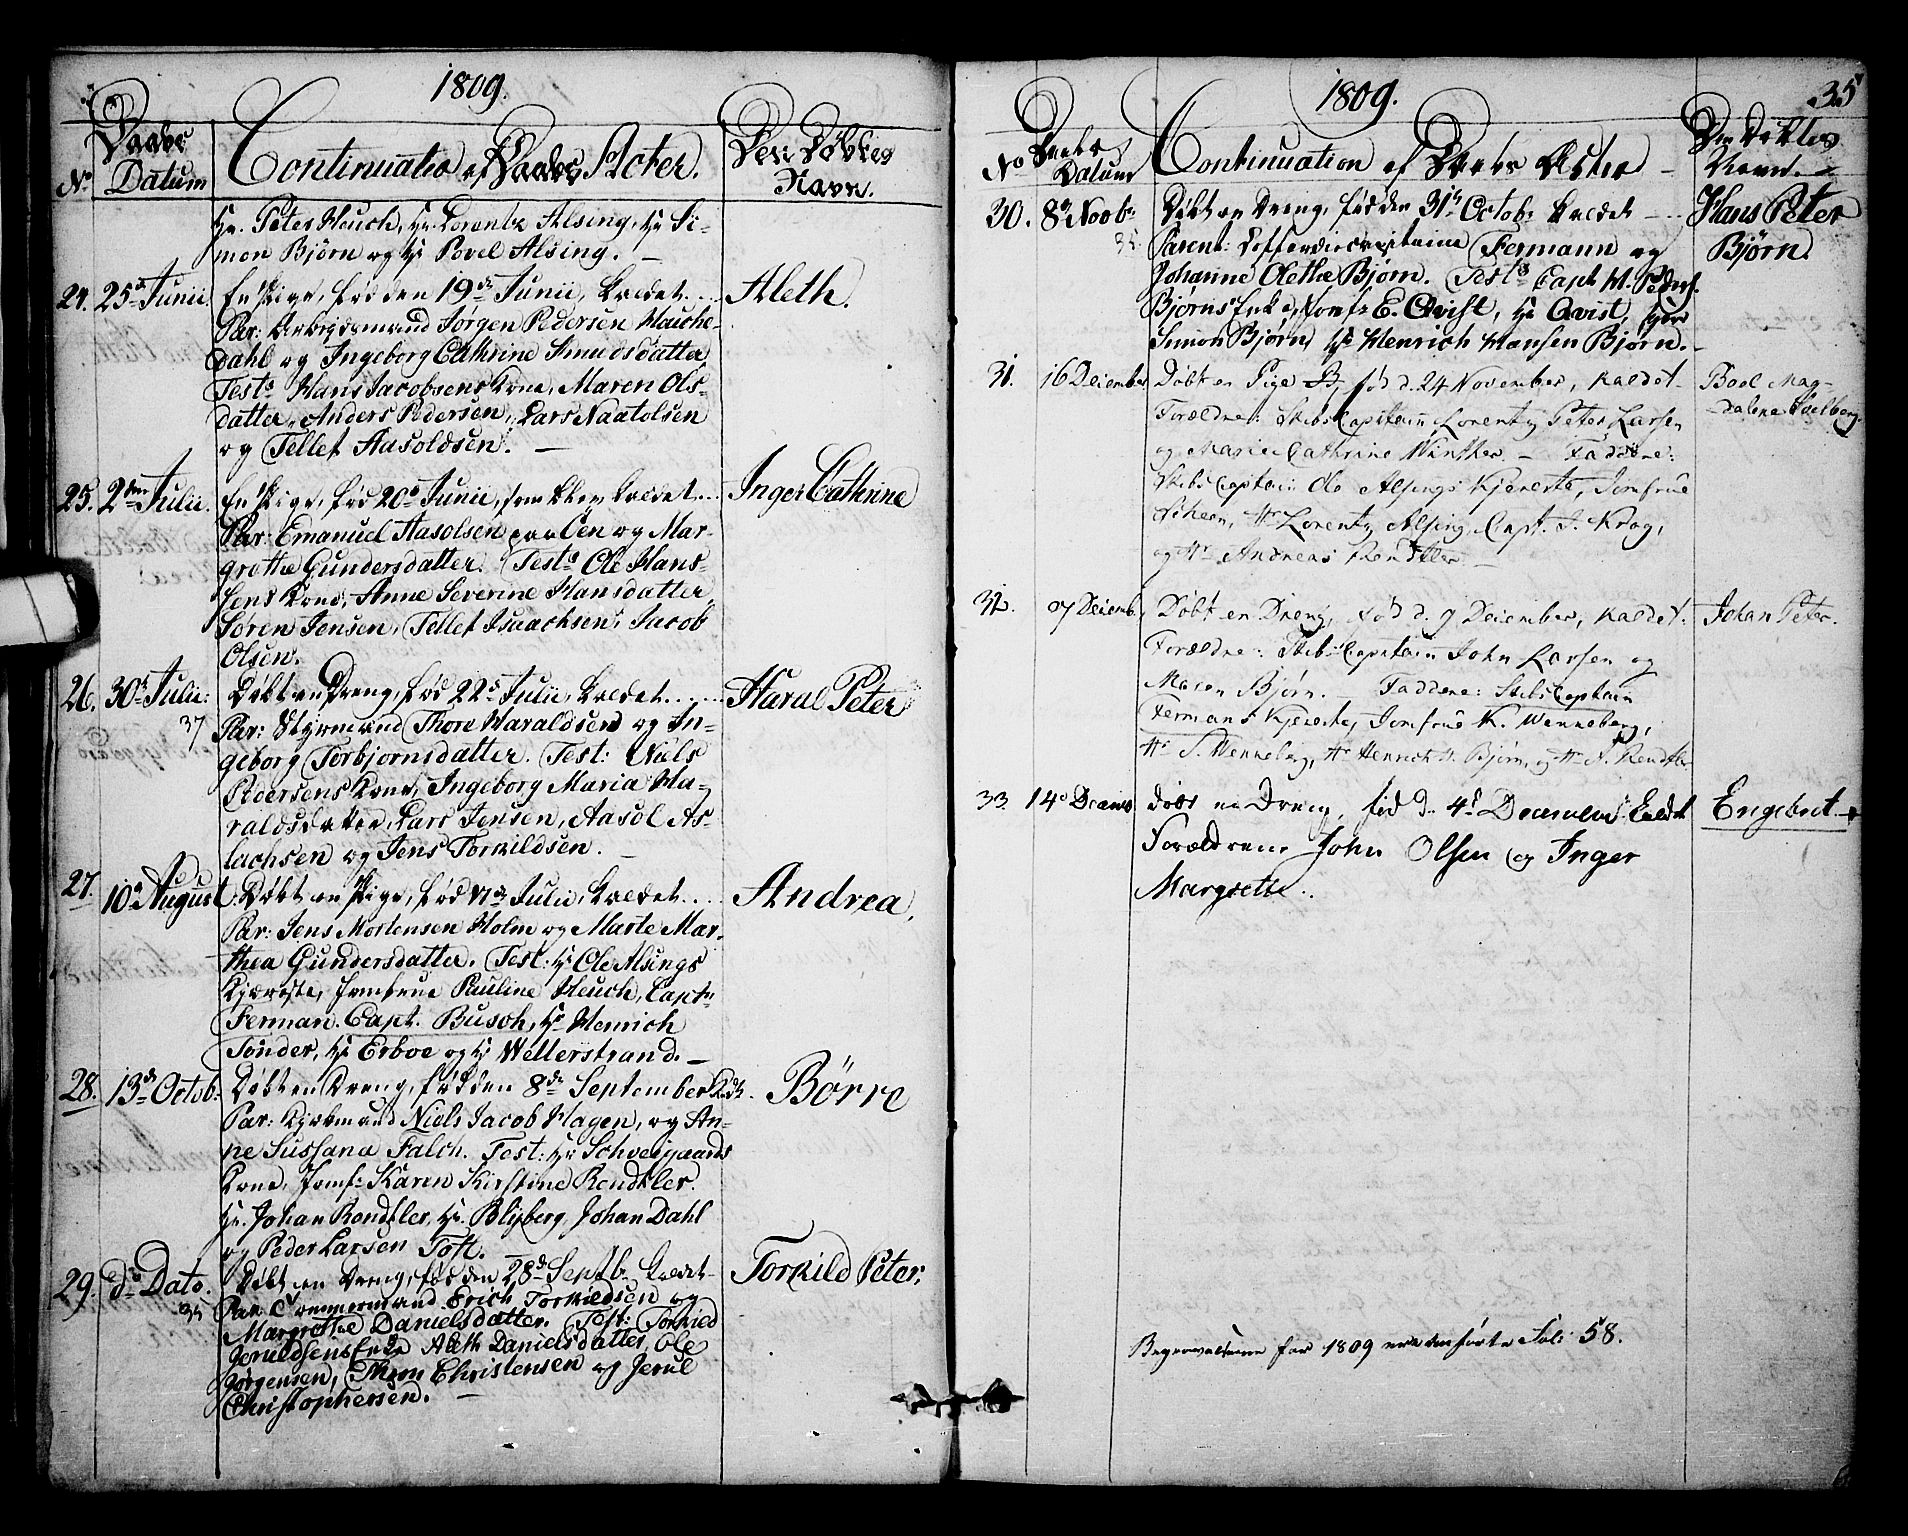 1809.
No
Daabs
Datum
Continuatio af Daabs Acter.
Den Döbtes
Navn.
Hr. Peter Heuch, Hr. Lorentz Alsing, Hr. Si-
mon Bjørn og Hr. Povel Alsing. —
24. 25de Junii. En Pige, fød den 19de Junii, kaldet.... Aleth.
Par: Arbejdsmand Jørgen Pedersen Hauche-
dahl og Ingeborg Cathrine Knudsdatter
Test: Hans Jacobsens Kone, Maren Ols-
datter, Anders Pedersen, Lars Naatolsen
og Tellef Aasoldsen. —
25. 2den Julii. En Pige, fød 20de Junii, som blev kaldet... Inger Cathrine
Par: Emanuel Aasolsen paa Øen og Mar-
grethe Gundersdatter. Test: Ole Hans-
sens Kone, Anne Severine Hansdatter,
Søren Jensen, Tellef Isaachsen, Jacob
Olsen.
26. 30te Julii. Döbt en Dreng, fød 22de Julii, kaldet..... Haral Peter
37 Par: Styrmand Thore Haraldsen og In-
geborg Torbjornsdatter. Test: Niels
Pedersens Kone, Ingeborg Maria Ha-
raldsdatter, Lars Jensen, Aasol As-
lachsen og Jens Torkildsen. —
27. 10de August. Döbt en Pige, fød 17de Julii, kaldet.... Andrea.
Par: Jens Mortensen Holm og Marte Mar-
thea Gundersdatter. Test: Hr Ole Alsings
Kjæreste, Jomfrue Pauline Heuch, Captn
Ferman. Capt. Busch, Hr Henrich
Tønder, Hr Erboe og Hr Wellerstrand. —
28. 13de Octob. Döbt en Dreng, fød den 8de September Kldt. Börre
Par: Kjøbmand Niels Jacob Hagen, og An-
ne Sussana Falch. Test: Hr Schveigaards
Kone, Jomf: Karen Kirstine Rendtler.
Hr. Johan Rendtler, Hr. Blijberg, Johan Dahl
og Peder Larsen Toft.
29. do Dato. Döbt en Dreng, fød den 28de Septb. kaldet Torkild Peter.
35 Par: Tømmermand Erich Torkildsen og
Margrethe Danielsdatter. Test: Torkied
Jeruldsens Enke Aleth Danielsdatter, Ole
Jørgensen, Thom Christensen og Jerul
Christophersen. —
1809.
35
No
Daabs
Datum
Continuation af Daabs Acter —
Den Döbtes
Navn. —
30. 8de Novbr. Döbt en Dreng, fød den 31te Octobr. kaldet — .. Hans Peter
35. Parent: Coffardiecapitaine Fermann og Bjørn.
Johanne Olethe Bjørn. Test: Capt H. Peders.
Bjørns Enke, Jomfr E. Qvist, Hr Qvist, Herr
Simon Bjørn, Hr Henrich Hansen Bjørn. —
31. 16 Deiember Døbt en Pige, fød d. 24 November, kaldet — Boel Mag-
Forældre: Skibs Capitain Lorentz Peter Larsen dalena Soelberg.
og Marie Cathrine Winther. — Faddere:
Skibs Capitain Ole Alsings Kjereste, Jomfrue
Scheen, Hr Lorentz Alsing, Capt. J. Krag,
og Hr Andreas Rendtler —
32. 07 Deiemb. Døbt en Dreng, fød d. 9 Deiember, kaldet. Johan Peter.
Forældre: Skibs Capitain John Larsen og
Maren Bjørn. — Faddere: Skibs Captain
Fermans Kjereste, Jomfrue K. Wenneberg,
Hr S. Wenneberg, Hr Henrich H. Bjørn, og Hr A. Rendtler
33. 14de Decembr döbt en Dreng, fød d. 4de December kaldet Engebret
Forældrene John Olsen og Inger
Margrette.
Begravelserne for 1809 ere anførte Foli 58.